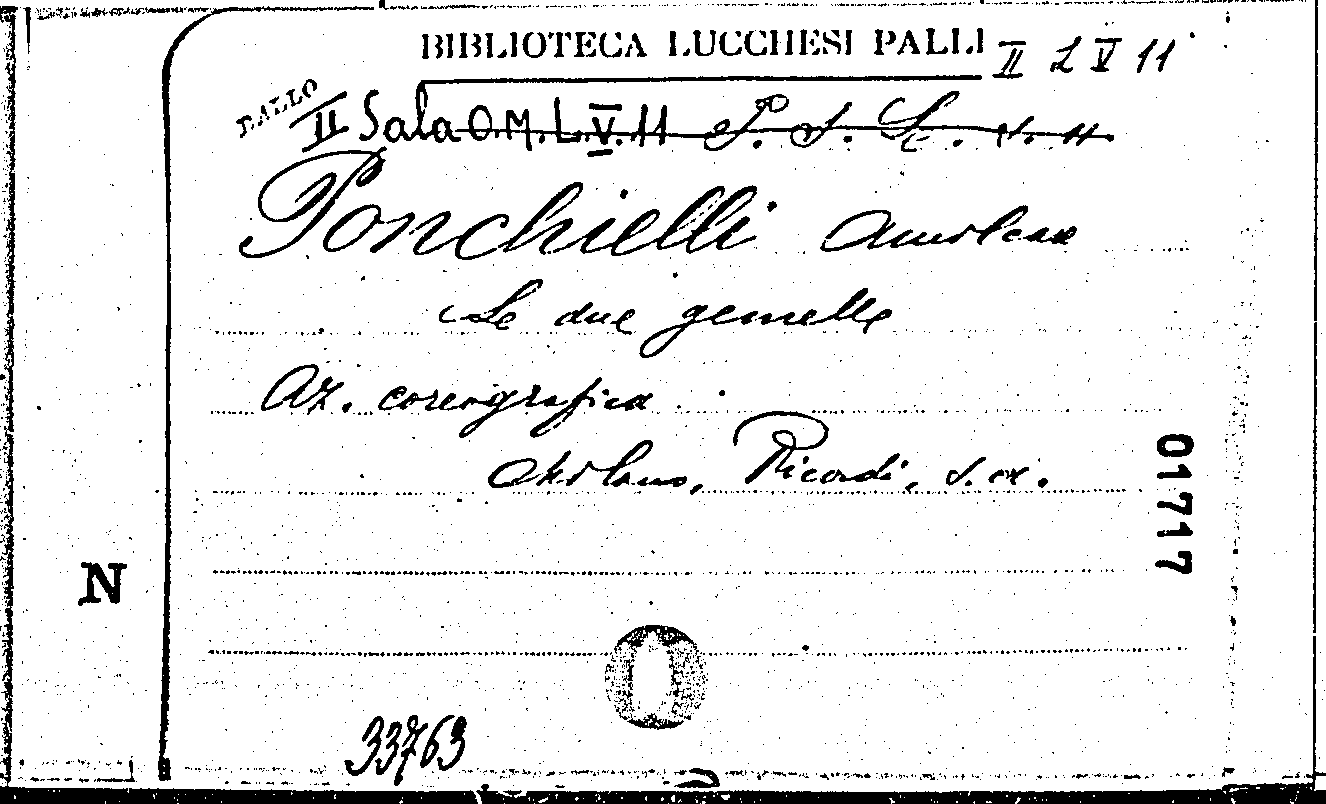 BIBLIOTECA LUCCHESI PALLI II L V 11
BALLO
II Sala O.M.L.V.11
Ponchielli Amilcare
Le due gemelle
Az. coreografica
Milano, Ricordi, s.a.
01717
N
33763